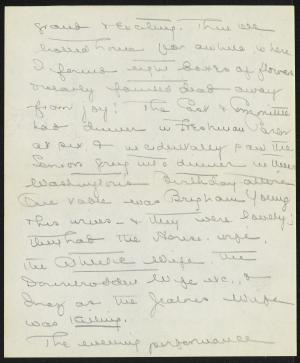 grand & exciting. Then we
home for awhile where
I found eight boxes of flowers
& nearly fainted dead away
from joy! The Cast & Committee
had dinner in Freshman
at six & incidentally saw the
Seniors going into dinner in their
Washington's Birthday attire
One table was Brigham Young
& his wives - & they were lovely;
they had the House wife,
the Athletic Wife, the
Downtrodden Wife etc., &
as the Jealous Wife
was killing.
The evening performance